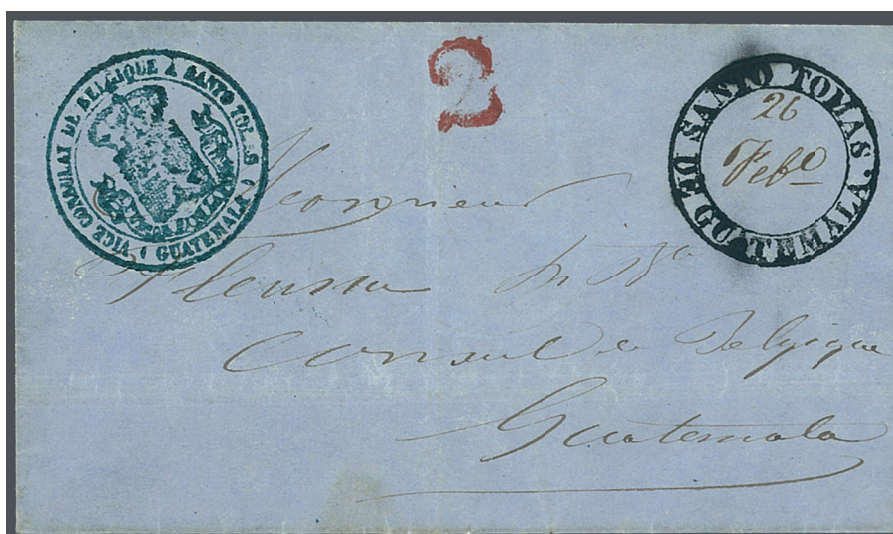 VICE CONSULAT DE BELGIQUE A SANTO TOMAS
( GUATEMALA )
2
DE SANTO TOMAS.
GUATEMALA.
26
Feb°
Monsieur
Consul de Belgique
Guatemala